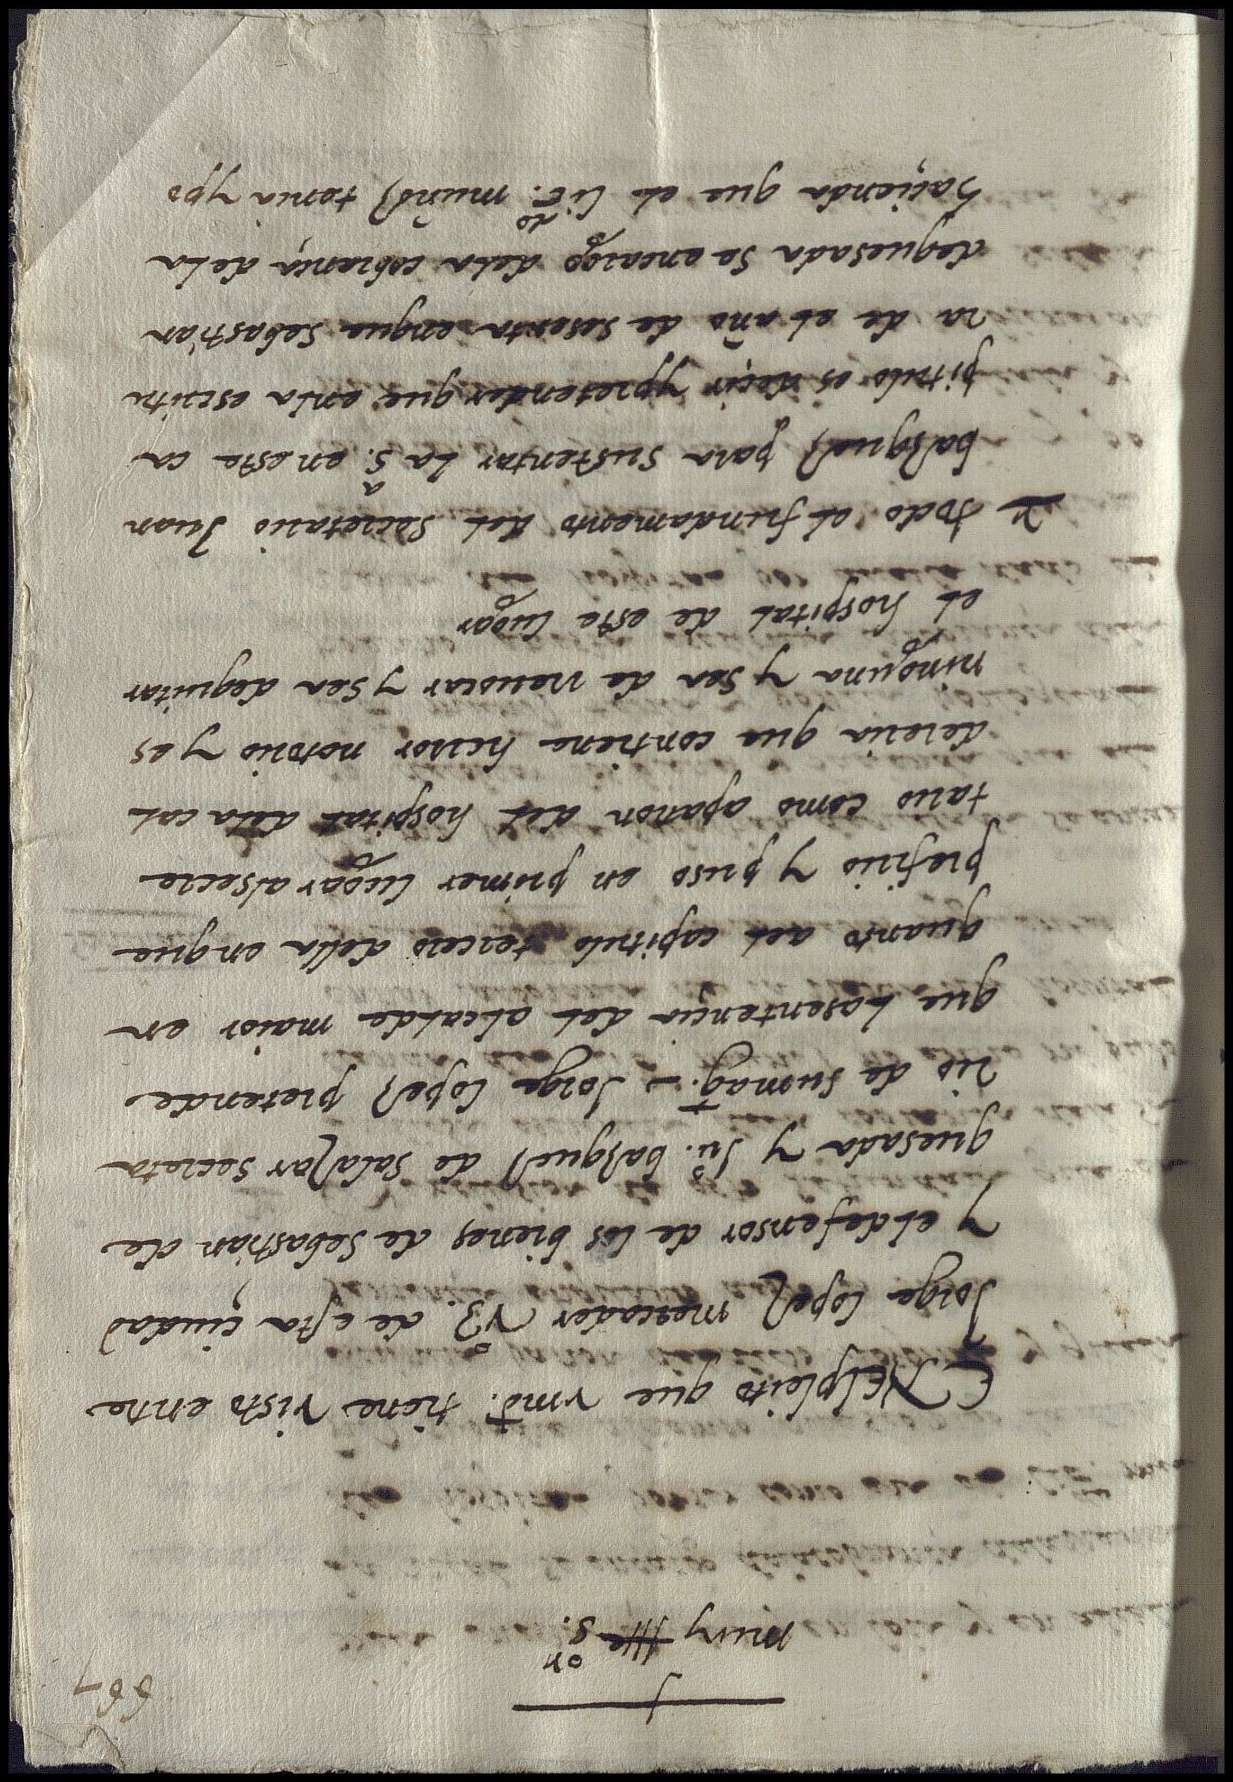 667
muy Ille s.or
En Elpleito que vmd. tiene visto entre
Jorge lopez mercader vº. de esta ciudad
y el defensor de los bienes de sebastian de
quesada y Ju.º bazquez de salazar secreta
rio de sumag.t Jorge lopez pretende
que lasentençia del alcalde maior en
quanto al capitulo tercero della enque
prefirio y puso en primer lugar alsecre
tario como apatron del hospital dela cal
dereria que contiene herror notorio y es
ninguna y sea de reuocar y sea dequitar
el hospital de este lugar
todo el fundamento del secretario Juan
bazquez para sustentar la s.a enesta ca
pitulo es deçir ypretender que enla escritu
ra de el año de sesenta enque sebastian
dequesada se encargo dela cobrança dela
haçienda que el liç.do muñoz tenia ypo